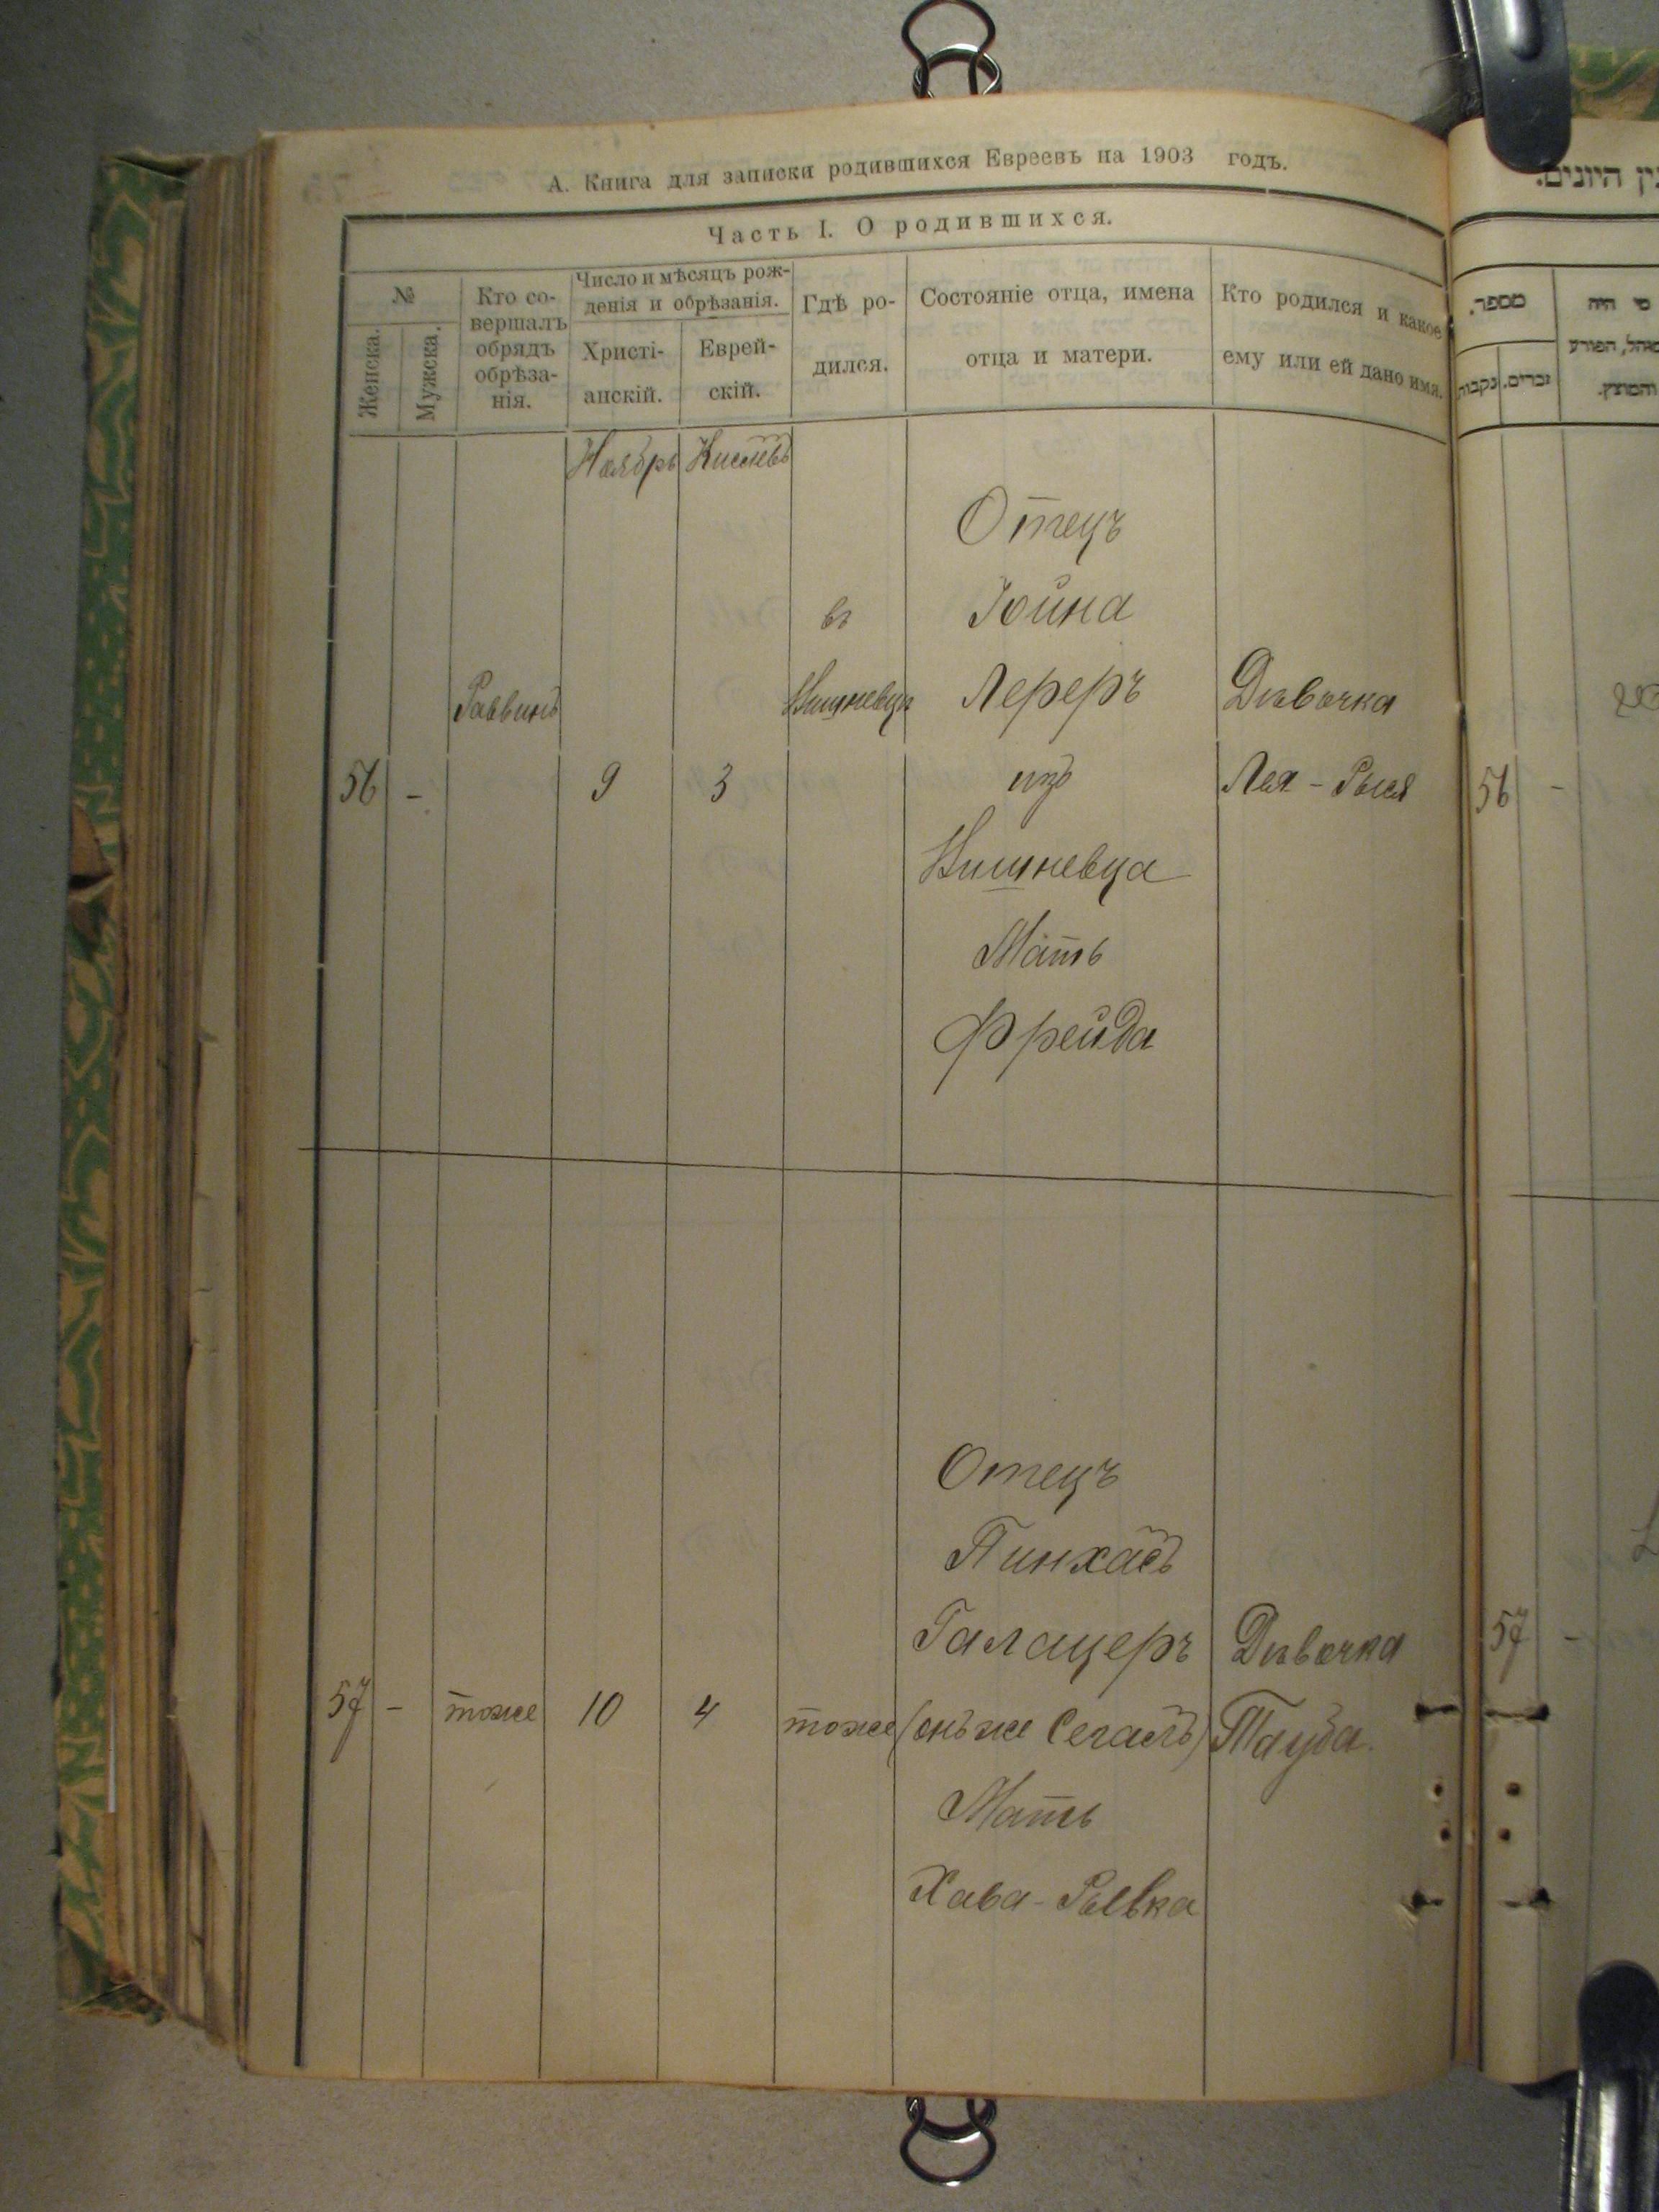 А. Книга для записки родившихся Евреевъ на 1903 годъ.
Часть I. О родившихся.
№
Женска.
Мужска.
Кто со-
вершалъ
обрядъ
обрѣза-
нія.
Число и мѣсяцъ рож-
денія и обрѣзанія.
Христі-
анскій.
Еврей-
скій.
Гдѣ ро-
дился.
Состояніе отца, имена
отца и матери.
Кто родился и какое
ему или ей дано имя.
Ноябрь
Кислевъ
56
-
Раввинъ
9
3
въ
Отецъ
Іойна
Лереръ
изъ
Мать
Фрейда
Дѣвочка
Лея - Рыся
57
-
тоже
10
4
тоже
Отецъ
Пинхасъ
Галацеръ
(онъ же Сегалъ)
Мать
Хава - Рывка
Дѣвочка
Тауба.
מספר.
נקבות
זכרים.
מי היה
והמוצץ.
56 -
57 -